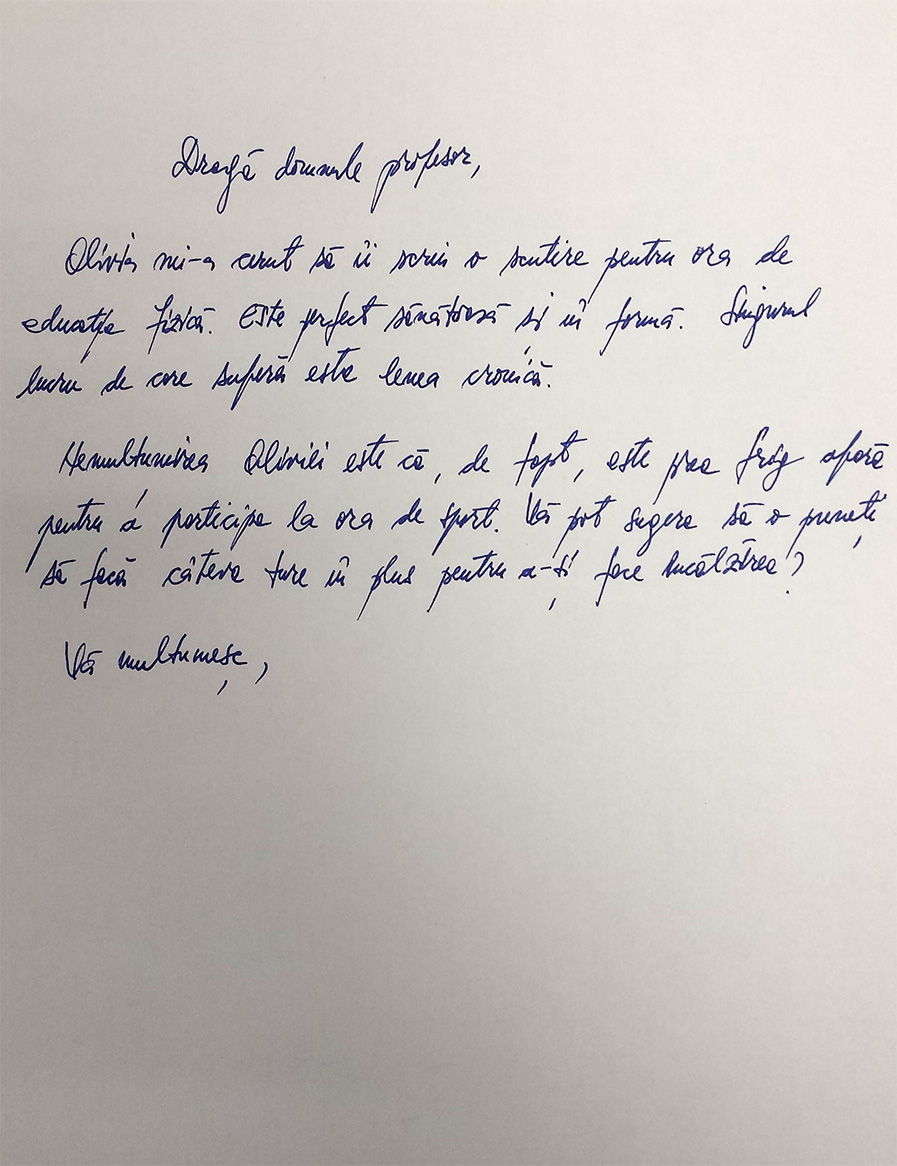 Dragă domnule profesor,
Olivia mi-a cerut să îi scriu o scutire pentru ora de
educație fizică. Este perfect sănătoasă și în formă. Singurul
lucru de care suferă este lenea cronică.
Nemulțumirea Oliviei este că, de fapt, este prea frig afară
pentru a participa la ora de sport. Vă pot sugera să o puneți
să facă câteva ture în plus pentru a-și face încălzirea?
Vă mulțumesc,